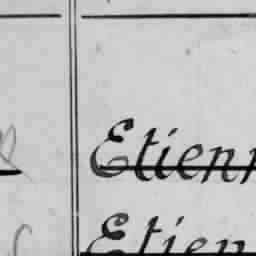 Etienn
Etien